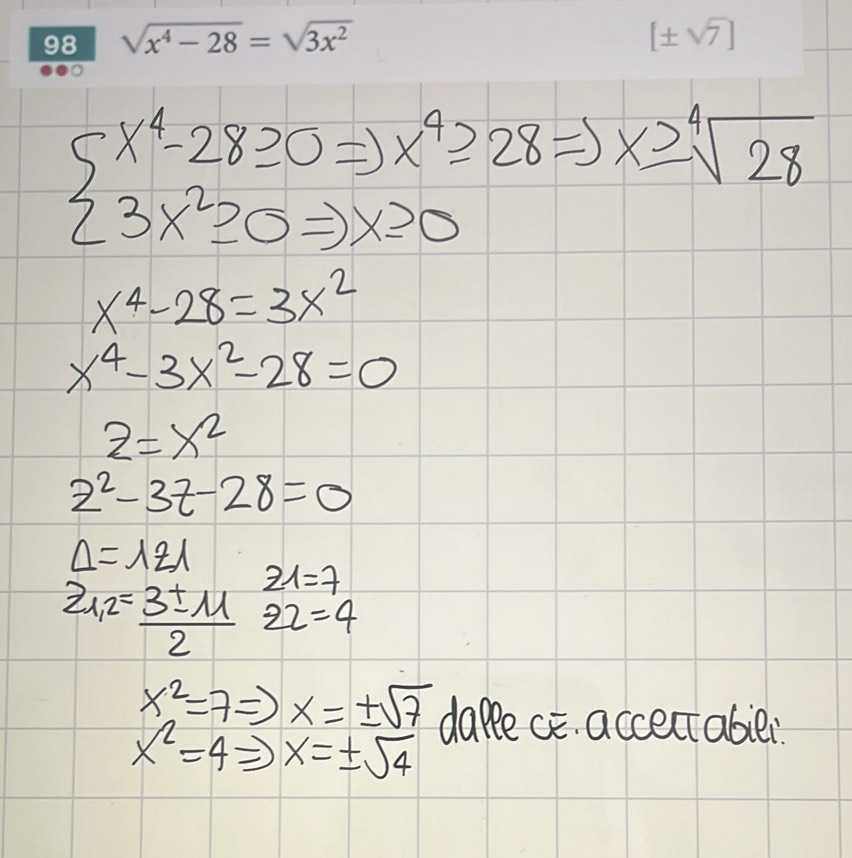 98 √(x⁴ − 28) = √(3x²) [± √7]
x⁴-28≥0 ⇒ x⁴≥28 ⇒ x≥⁴√28
3x²≥0 ⇒ x≥0
x⁴-28=3x²
x⁴-3x²-28=0
z=x²
z²-3z-28=0
Δ=121
z1,2=(3±11)/2 z1=7
z2=4
x²=7 ⇒ x=±√7 dalle C.E. accettabili.
x²=4 ⇒ x=±√4